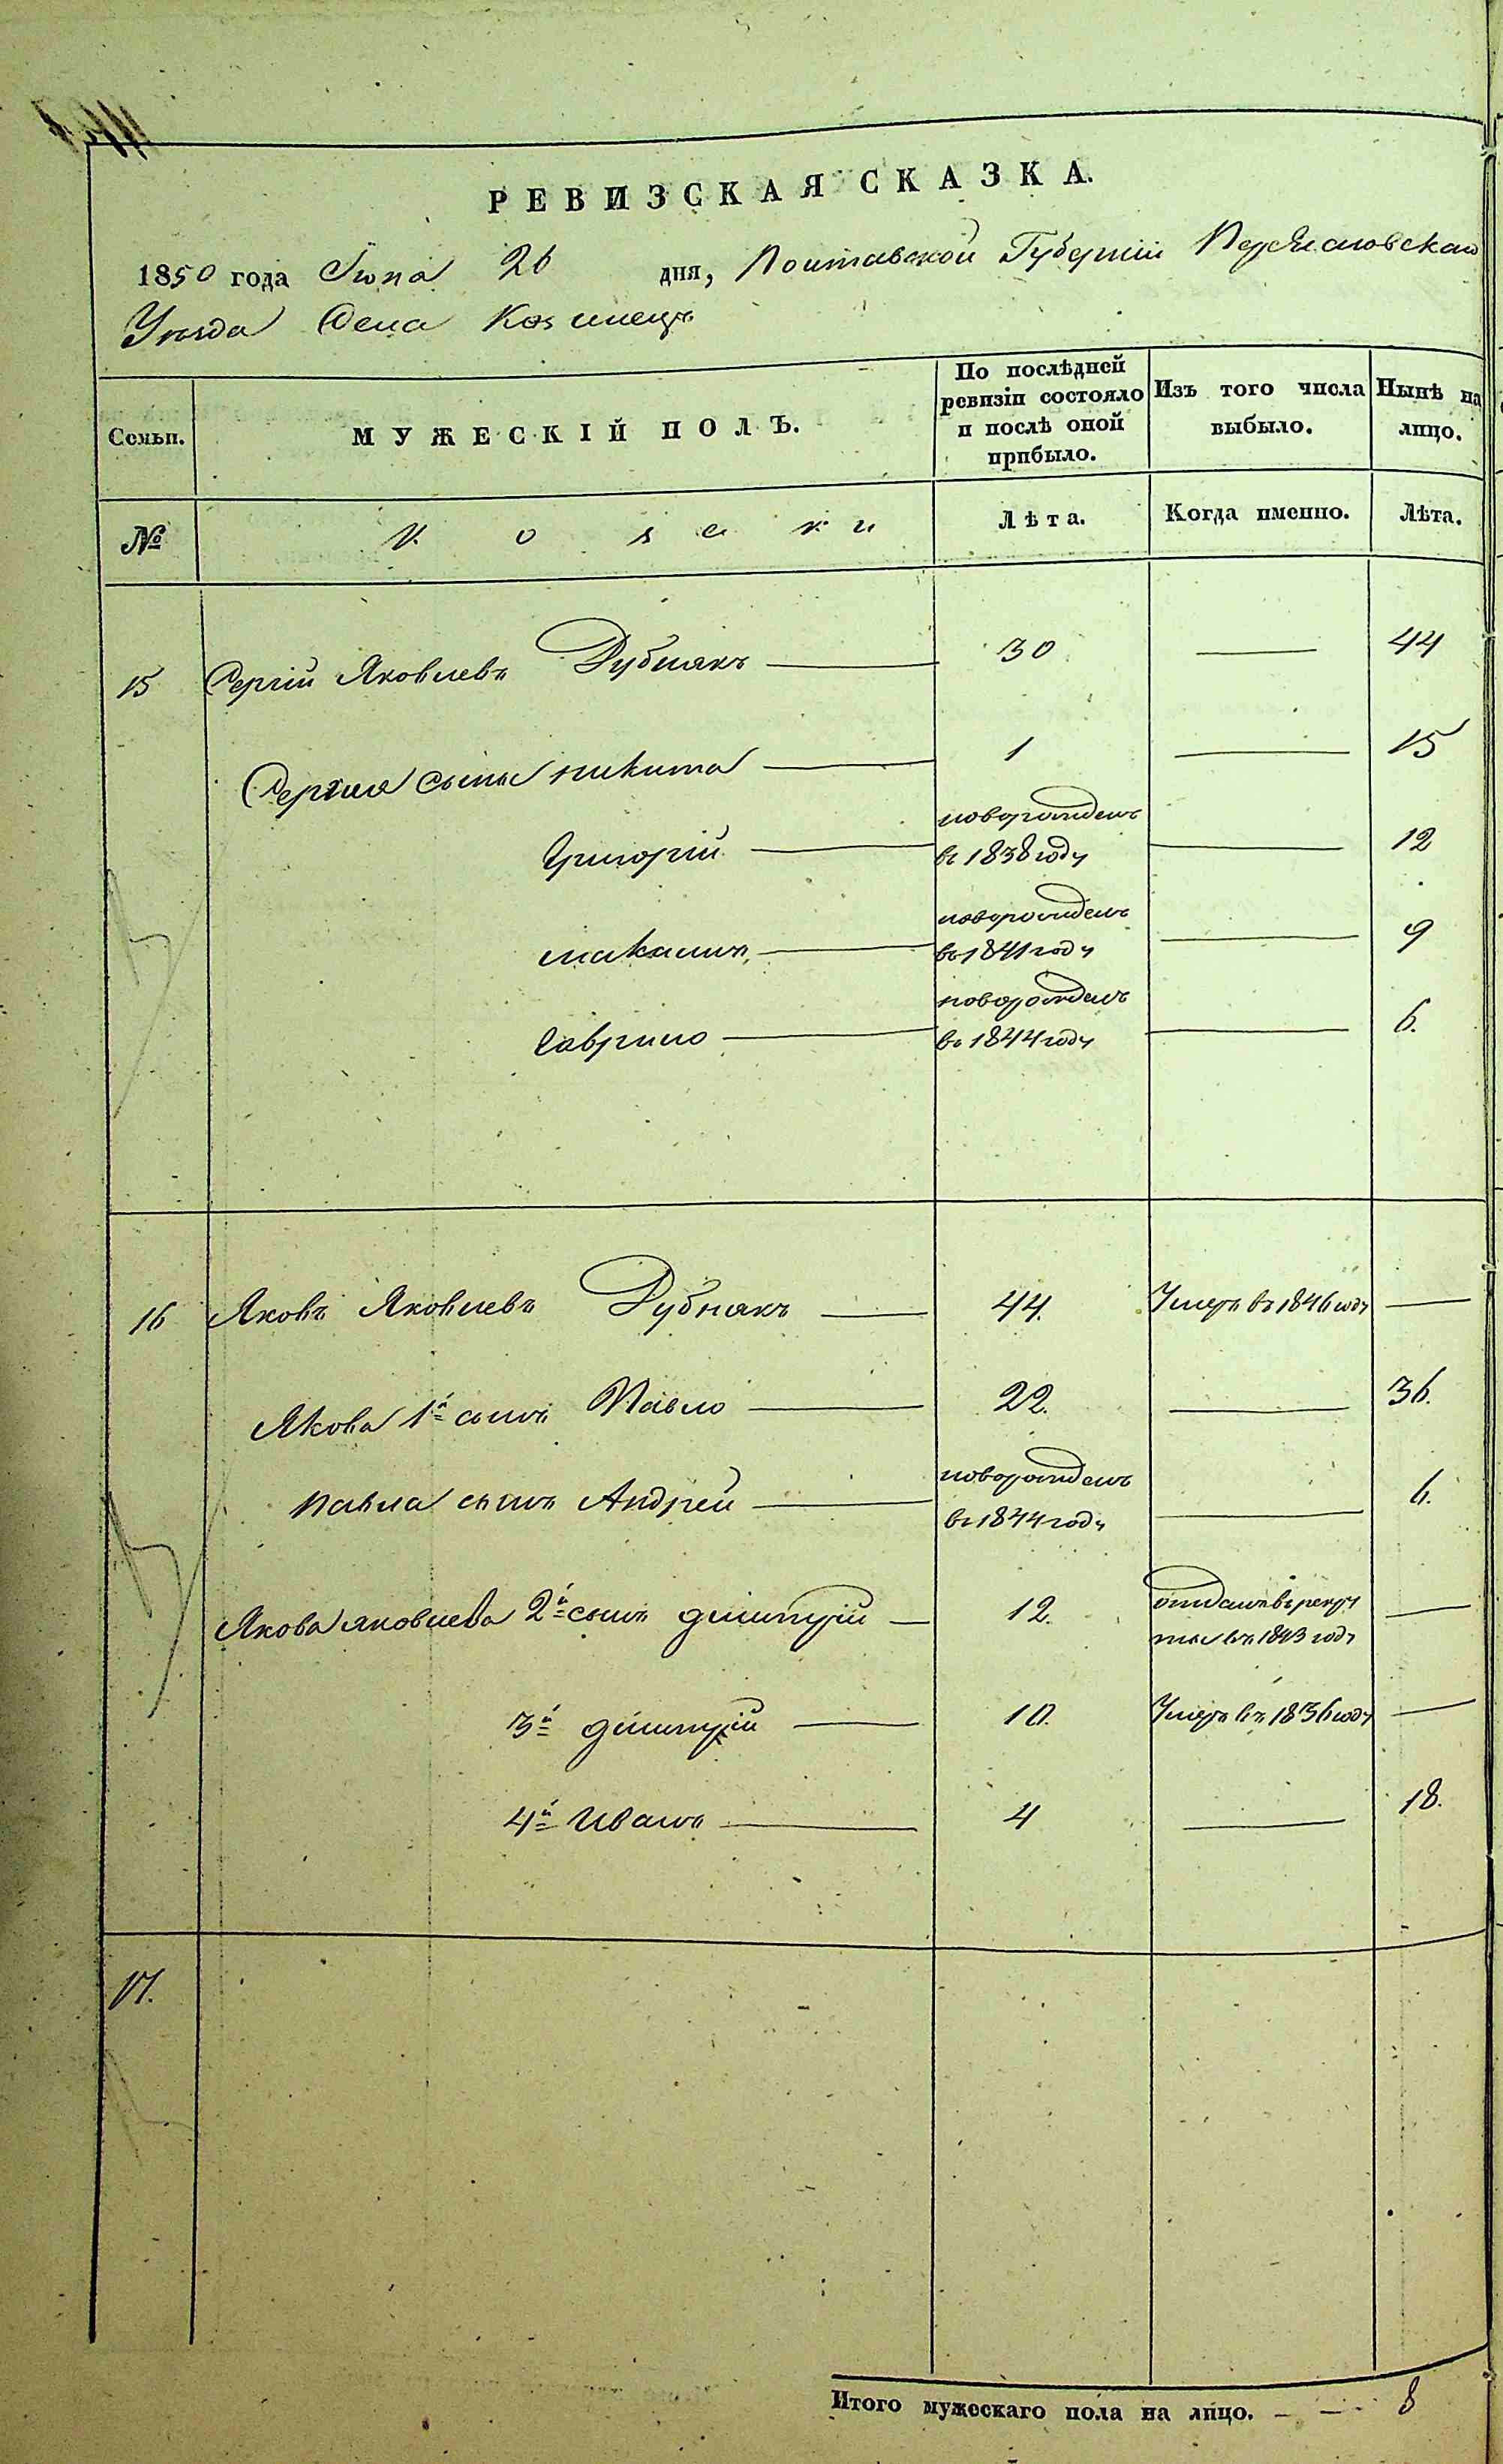 РЕВИЗСКАЯ СКАЗКА.
1850 года Июня 26 дня, Полтавской Губерніи Переяславскаго
Уѣзда Села Козинецъ
Семьи.
МУЖЕСКІЙ ПОЛЪ.
По послѣдней ревизіи состояло и послѣ оной прибыло.
Изъ того числа выбыло.
Нынѣ на лицо.
№
Козаки
Лѣта.
Когда именно.
Лѣта.
15 Сергій Яковлевъ Дубнякъ 30 44
Сергія сыны Никита 1 15
Григорій новорожденъ въ 1838 году 12
Максимъ новорожденъ въ 1841 году 9
Гаврило новорожденъ въ 1844 году 6.
16 Яковъ Яковлевъ Дубнякъ 44. Умеръ въ 1846 году
Якова 1й сынъ Павло 22. 36.
Павла сынъ Андрей новорожденъ въ 1844 году 6.
Якова Яковлева 2й сынъ Дмитрій 12. отданъ в рекруты въ 1843 году
3й Дмитрій 10. Умеръ въ 1836 году
4й Иванъ 4 18.
17.
Итого мужескаго пола на лицо. 8